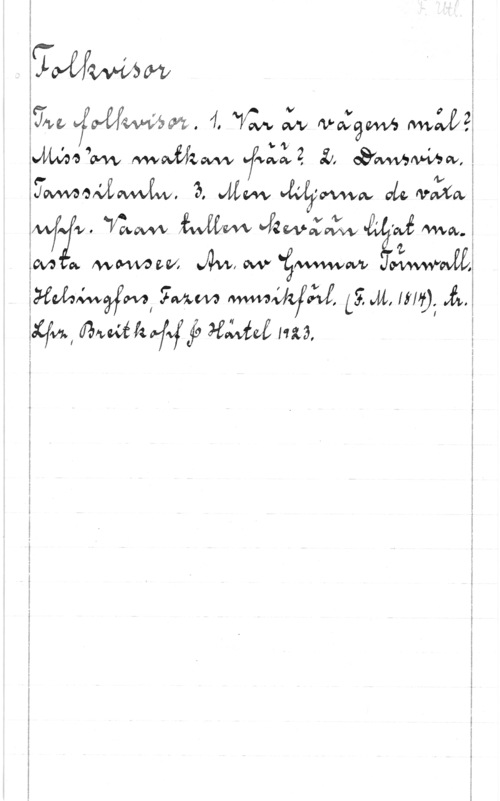 F. Utl.
Folkvisor
Tre folkvisor. 1. Var är vägens mål?
Miss'on matkan pää? 2. Dansvisa.
Tanssilaulu. 3. Men liljorna de växa
upp. Vaan tullen kevään liljat ma-
asta nousee. Arr. av Gunnar Törnwall.
Helsingfors, Fazers musikförl. (F. M. 1814); tr.
Lpz, Breitkopf & Härtel 1923.